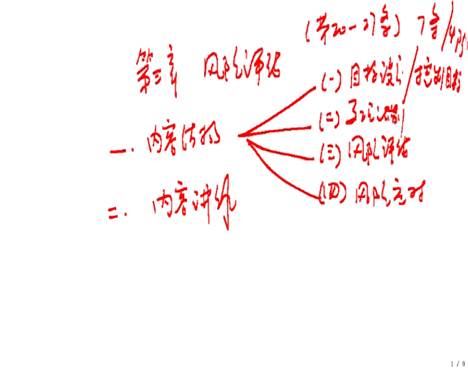 (第20-27条) 7条/4
第三章 风险评估
(一) 目标设立/控制目标
一、内容结构
(二) 风险识别
(三) 风险评估
(四) 风险应对
二、内容讲解
1 / 9